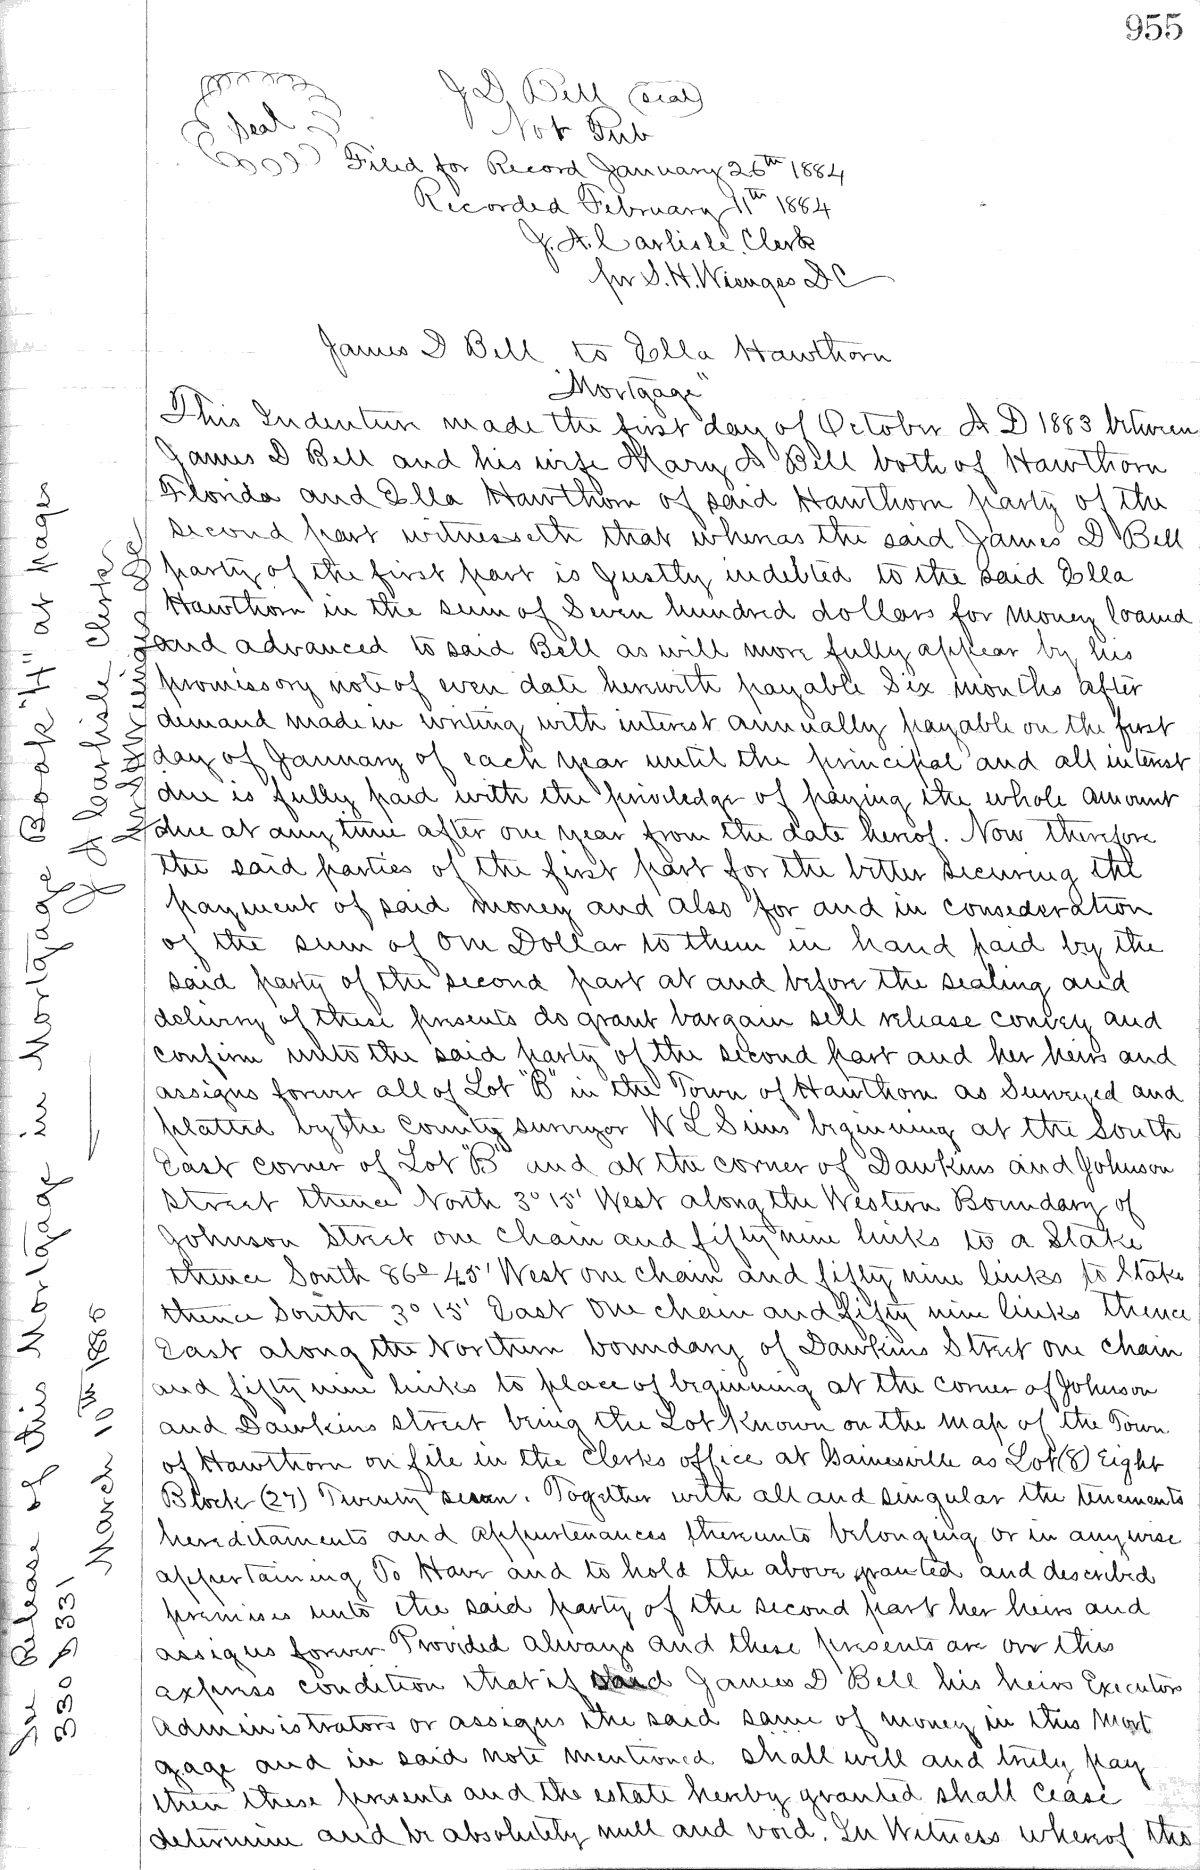 955
J D, Bell (seal)
Seal
Not Pub
Filed for Record January 26th 1884
Recorded February 11th 1884
J. A. Carlisle. Clerk
pr S. H. Wienges D C
James D Bell to Ella Hawthorn
"Mortgage"
This Indenture made the first day of October A D 1883 between
James D Bell and his wife Mary A Bell both of Hawthorn
Florida and Ella Hawthorn of said Hawthorn party of the
second part witnesseth that whereas the said James D Bell
party of the first part is justly indebted to the said Ella
Hawthorn in the sum of Seven hundred dollars for money loaned
and advanced to said Bell as will more fully appear by his
promissory note of even date herewith payable Six months after
demand made in writing with interest annually payable on the first
day of January of each year until the principal and all interest
due is fully paid with the priviledge of paying the whole amount
due at any time after one year from the date hereof. Now therefore
the said parties of the first part for the better securing the
payment of said money and also for and in consideration
of the sum of One Dollar to them in hand paid by the
said party of the second part at and before the sealing and
delivery of these presents do grant bargain sell release convey and
confirm unto the said party of the second part and her heirs and
assigns forever all of Lot "B" in the Town of Hawthorn as Surveyed and
platted by the County surveyor W L Sims beginning at the South
East corner of Lot "B" and at the corner of Dawkins and Johnson
Street thence North 3° 15' West along the Western Boundary of
Johnson Street one chain and fifty nine links to a Stake
thence South 86° 45' West one chain and fifty nine links to Stake
thence South 3° 15' East One chain and fifty nine links thence
East along the Northern boundary of Dawkins Street one chain
and fifty nine links to place of beginning at the corner of Johnson
and Dawkins street being the Lot known on the map of the Town
of Hawthorn on file in the Clerks office at Gainesville as Lot (8) Eight
Block (27) Twenty seven. Together with all and singular the tenements
hereditaments and appurtenances thereunto belonging or in anywise
appertaining To Have and to hold the above granted and described
premises unto the said party of the second part her heirs and
assigns forever Provided always and these presents are on this
express condition that if said James D Bell his heirs Executors
administrators or assigns the said same of money in this Mort
gage and in said note mentioned shall well and truly pay
then these presents and the estate hereby granted shall cease
determine and be absolutely null and void. In Witness whereof the
See Release of this Mortgage in Mortgage Book "H" at pages
330 & 331
J A Carlisle Clerk
March 10th 1886